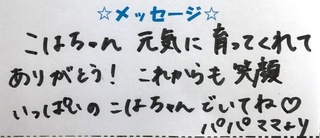 ☆メッセージ☆
こはちゃん 元気に 育ってくれて
ありがとう! これからも 笑顔
いっぱいの こはちゃんでいてね♡
パパ ママより